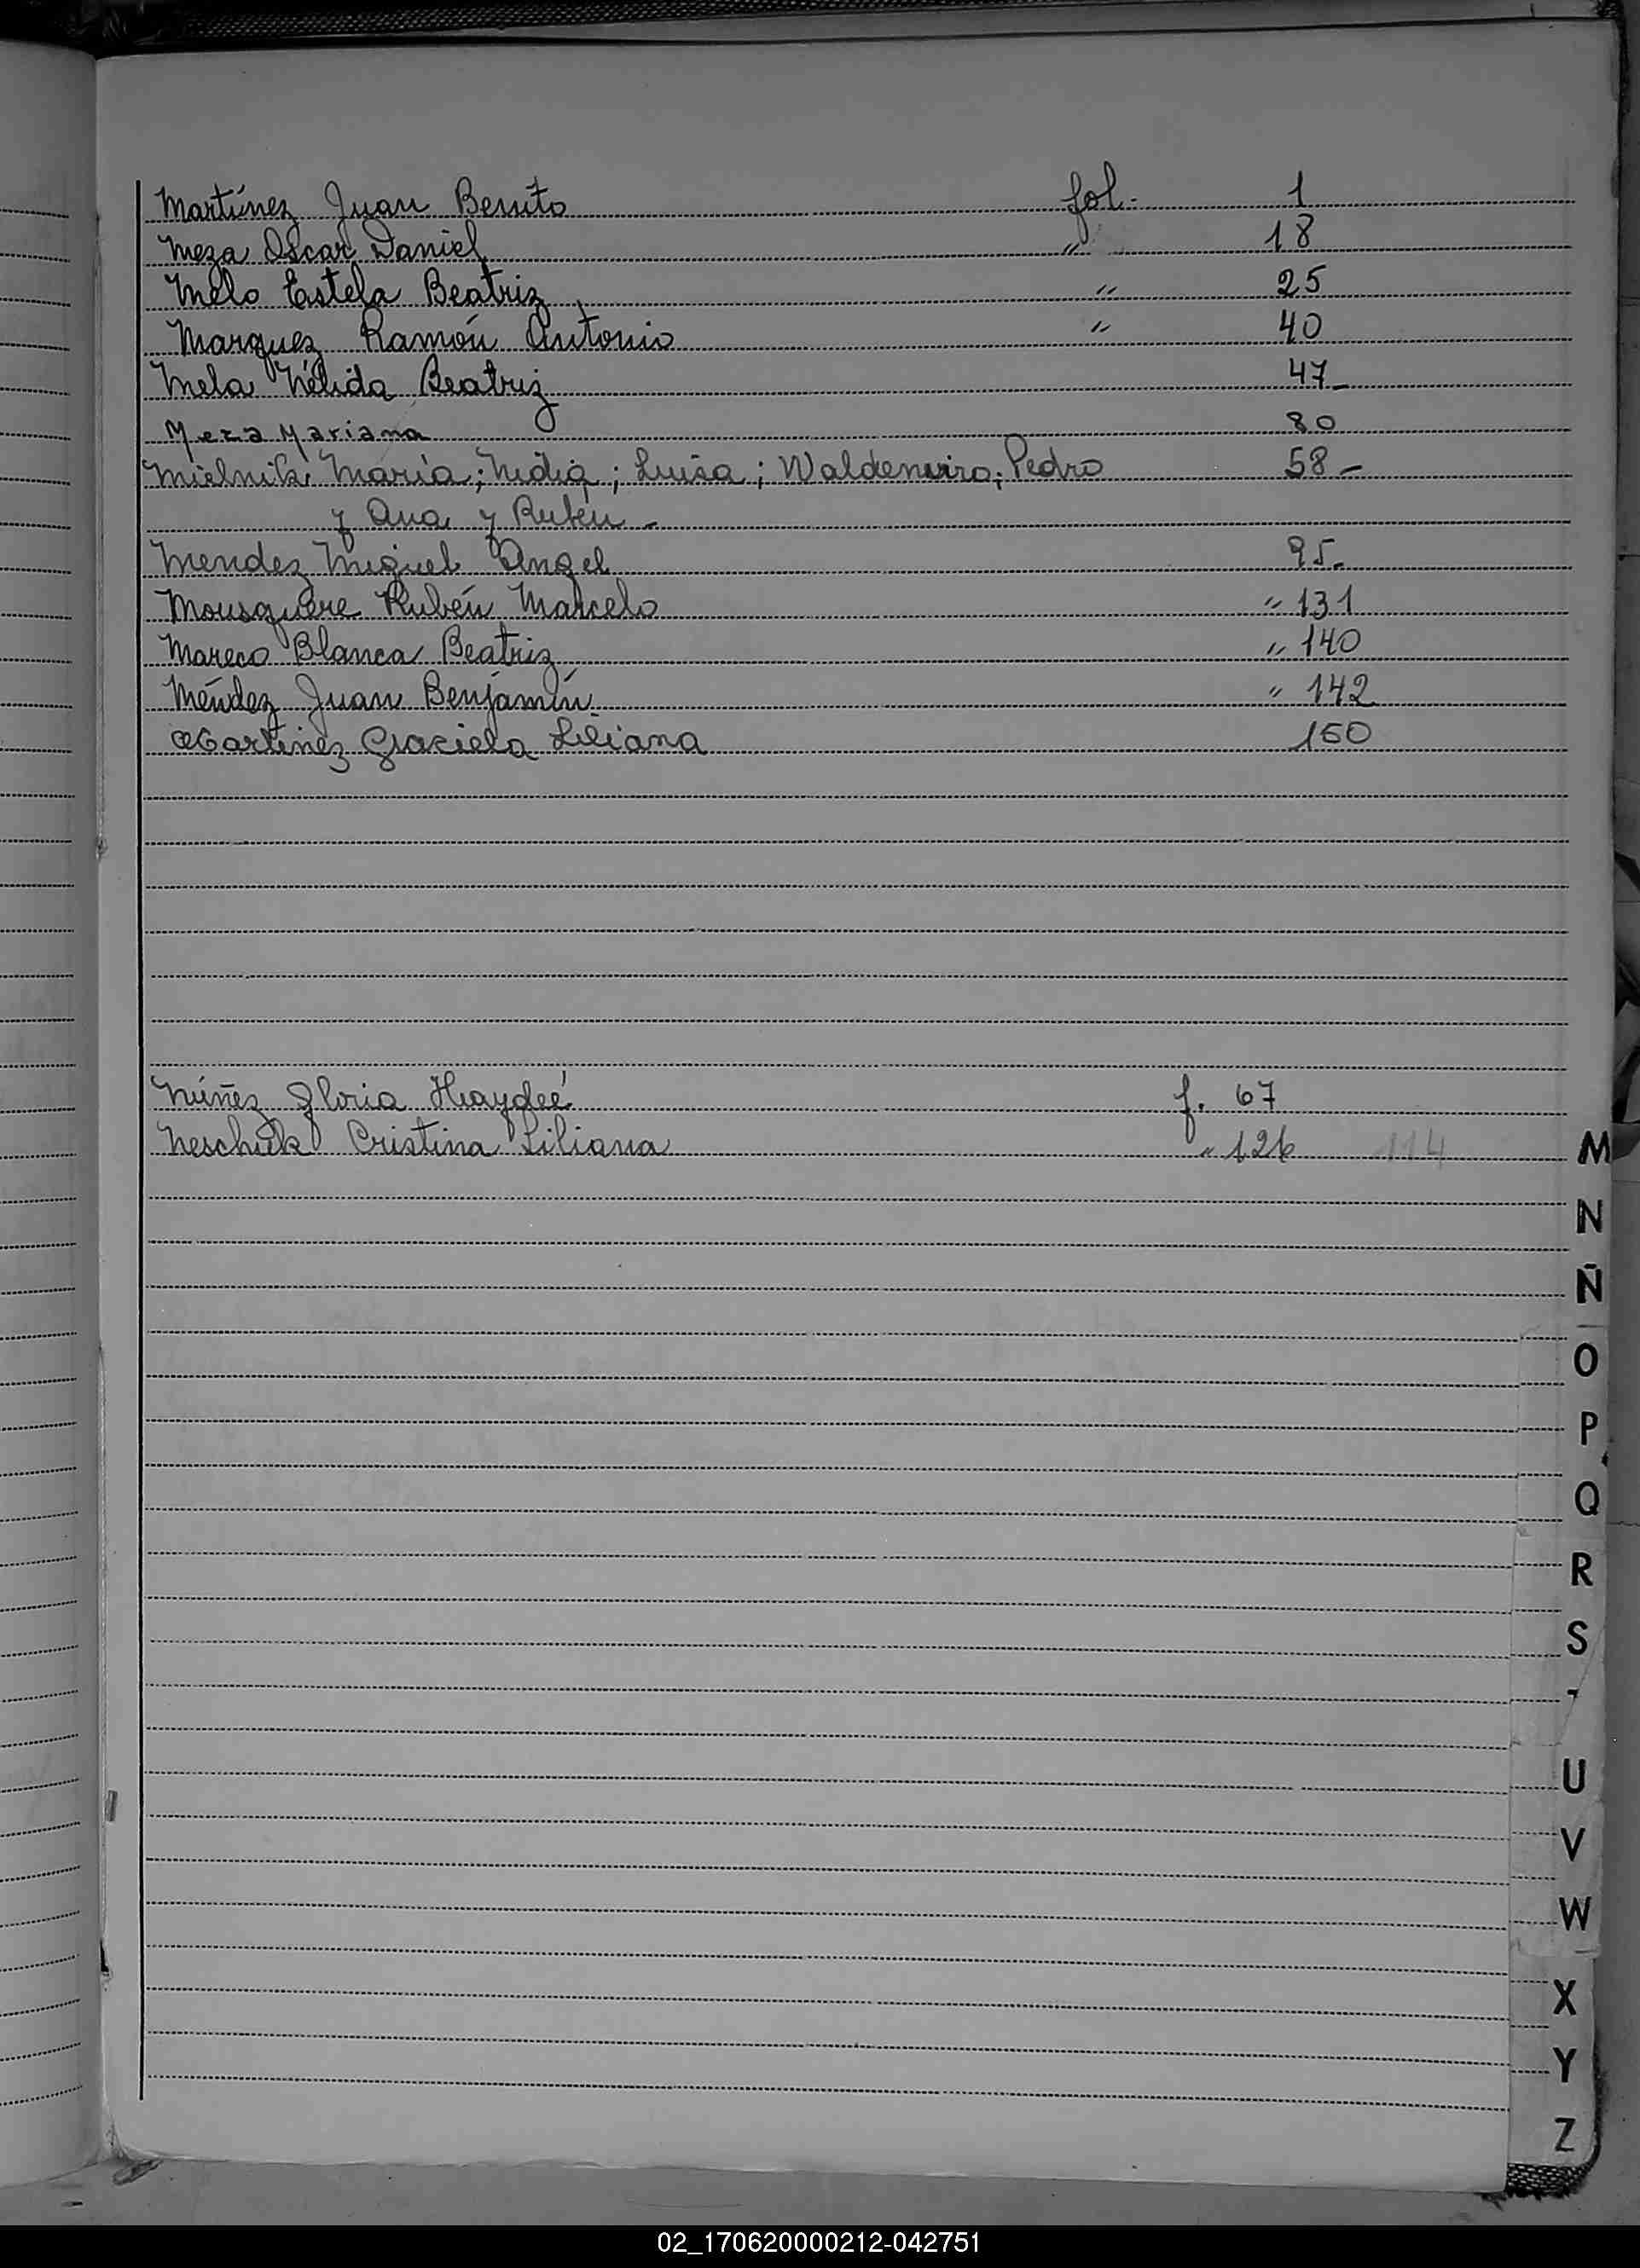 Martínez Juan Benito fol. 1
Meza Oscar Daniel " 18
Melo Estela Beatriz " 25
Marquez Ramón Antonio " 40
Mela Nélida Beatriz 47-
Meza Mariana 80
Mielnik María; Nidia; Luisa; Waldemiro; Pedro 58-
y Ana y Rubén -
Mendez Miguel Angel 95.
Mousquere Rubén Marcelo " 131
Mareco Blanca Beatriz " 140
Méndez Juan Benjamín. " 142
Martínez Graciela Liliana 160
Núñez Gloria Haydeé f. 67
Neschuk Cristina Liliana " 126 114
M
N
Ñ
O
P
Q
R
S
U
V
W
X
Y
Z
02_170620000212-042751